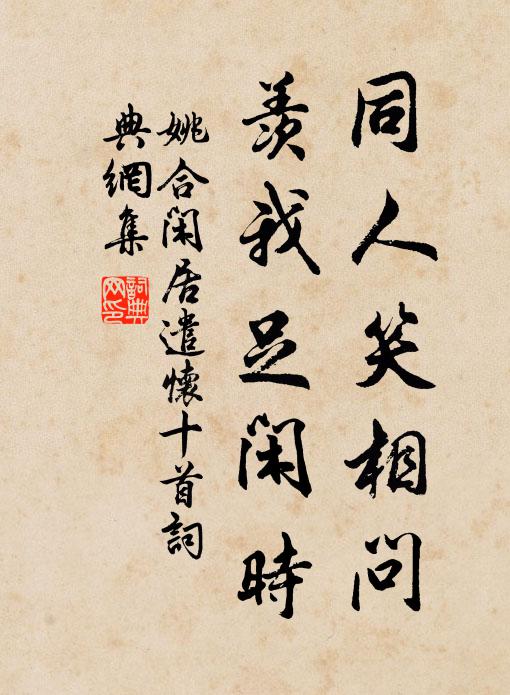 同人笑相問
羨我足閑時
姚合閑居遣懷十首詞
典網集
詞典
网印